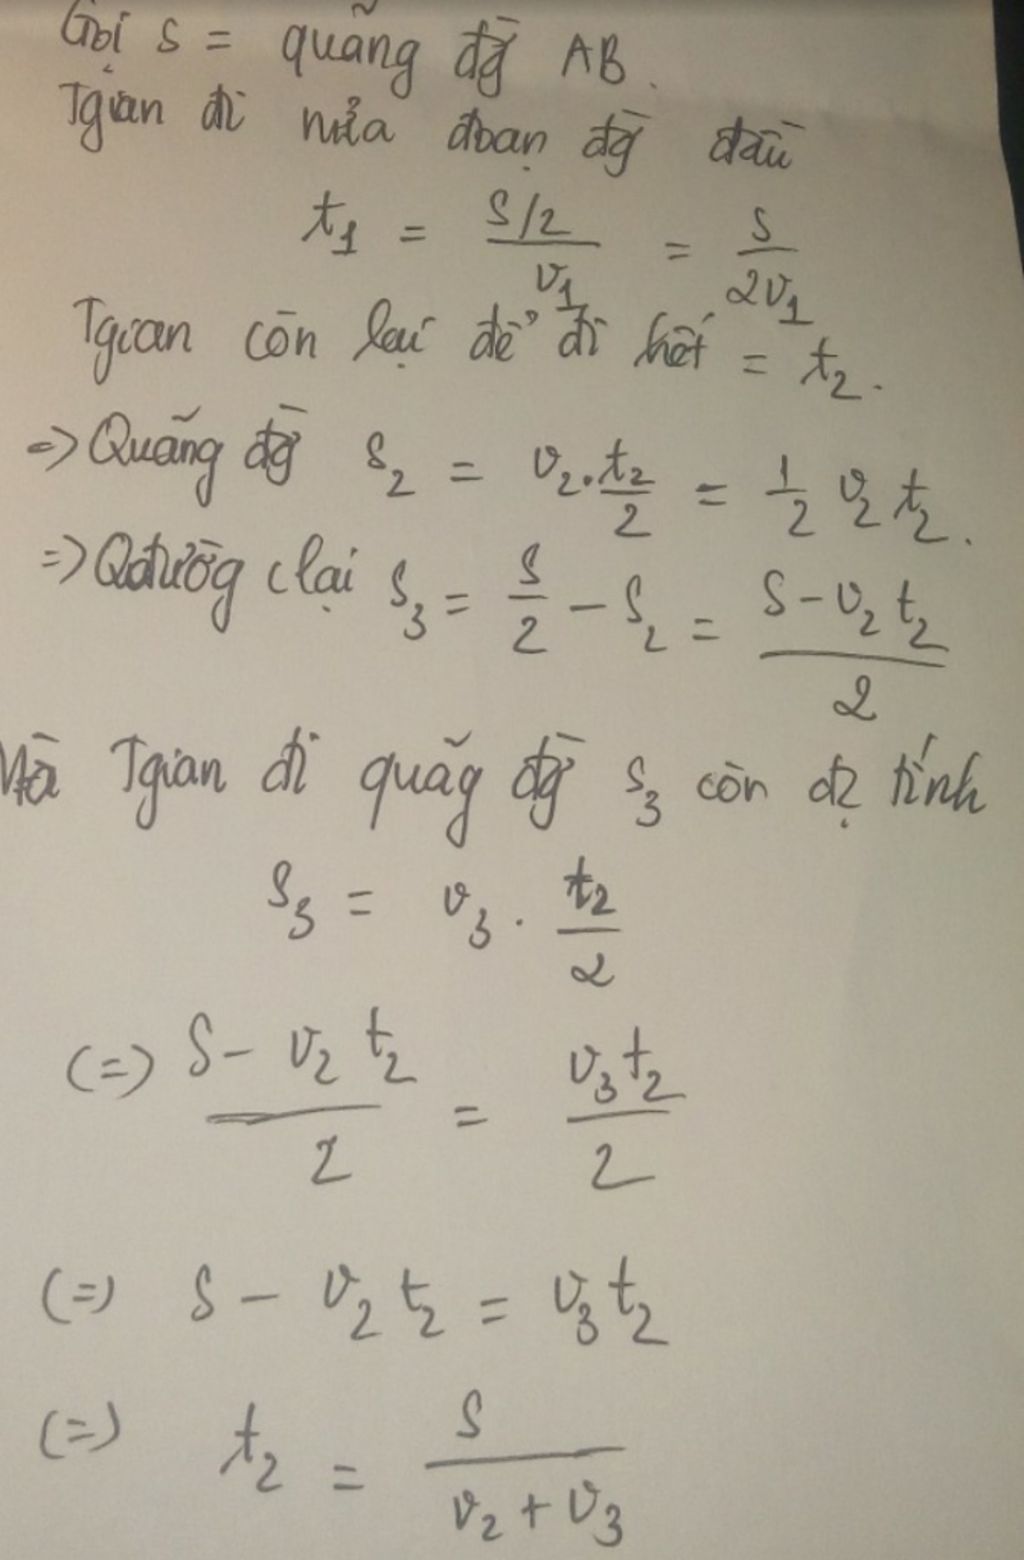 Gọi s = quãng đg̀ AB.
Tgian đi nửa đoạn đg̀ đầu
t₁ = (s/2)/v₁ = s/(2v₁)
Tgian còn lại để đi hết = t₂.
=> Quãng đg̀ s₂ = v₂.t₂/2 = 1/2 v₂ t₂.
=> Qđường clại s₃ = s/2 - s₂ = (s - v₂ t₂)/2
Mà Tgian đi quãg đg̀ s₃ còn đc tính
s₃ = v₃ . t₂/2
(=) (s - v₂ t₂)/2 = v₃t₂/2
(=) s - v₂ t₂ = v₃t₂
(=) t₂ = s/(v₂ + v₃)